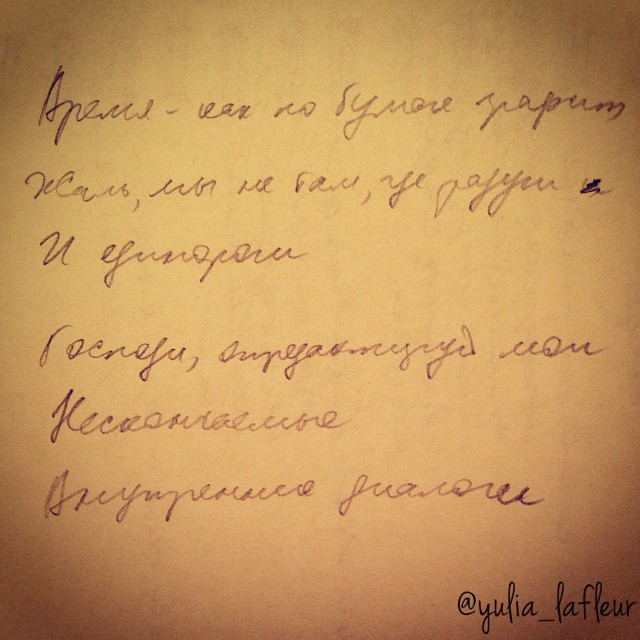 Время - как по бумаге графит
Жаль, мы не там, где радуги
И единороги
Господи, отредактируй мои
Нескончаемые
Внутренние диалоги
@yulia_lafleur